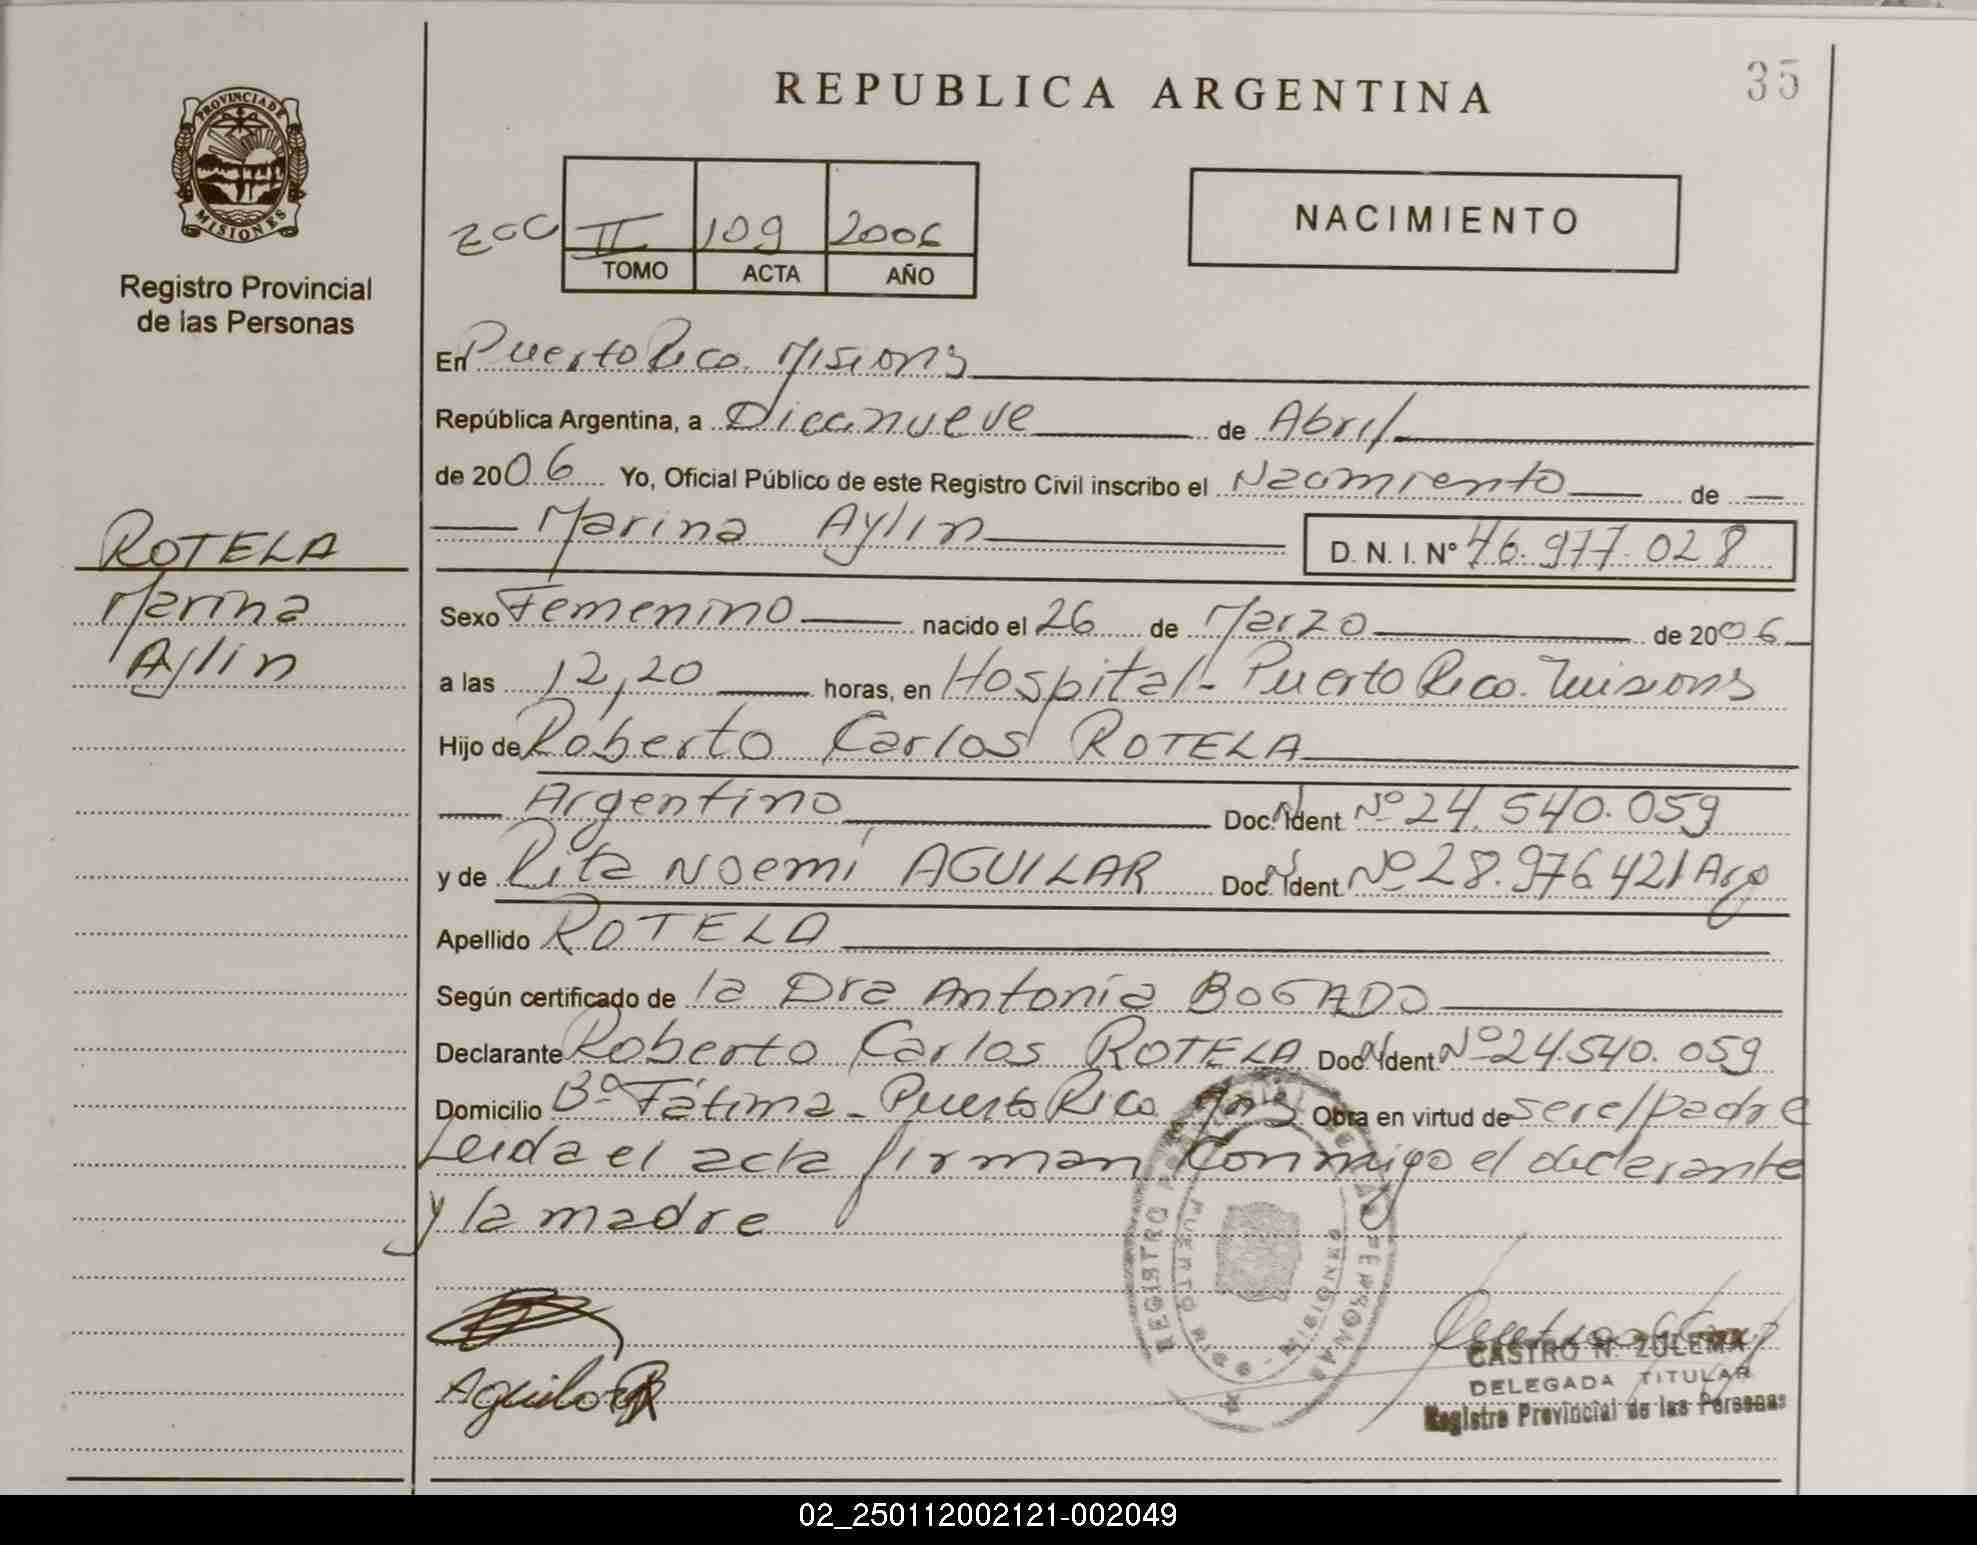 REPUBLICA ARGENTINA
35
PROVINCIA DE
MISIONES
Registro Provincial
de las Personas
II 109 2006
TOMO ACTA AÑO
NACIMIENTO
ROTELA
Marina
Aylin
En Puerto Rico. Misions
República Argentina, a Diecinueve de Abril
de 2006 Yo, Oficial Público de este Registro Civil inscribo el Nacimiento de
Marina Aylin D. N. I. Nº 46.977.028
Sexo Femenino nacido el 26 de Marzo de 2006
a las 12,20 horas, en Hospital - Puerto Rico. Misions
Hijo de Roberto Carlos ROTELA
Argentino Doc. N. Ident. Nº 24.540.059
y de Rita Noemí AGUILAR Doc. N. Ident. Nº 28.976.421 Arg
Apellido ROTELA
Según certificado de la Dra Antonia BOGADO
Declarante Roberto Carlos ROTELA Doc. N. Ident. Nº 24.540.059
Domicilio Bº Fátima - Puerto Rico Mns Obra en virtud de ser el padre
Leida el acta firman conmigo el declarante
y la madre
REGISTRO DE LAS PERSONAS
PUERTO RICO - MISIONES
Aguilar R
CASTRO N. ZULEMA
DELEGADA TITULAR
Registro Provincial de las Personas
02_250112002121-002049